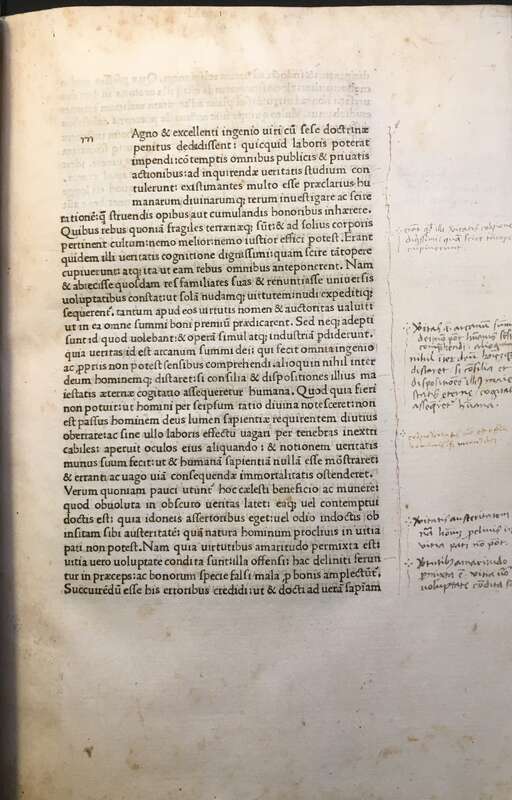 m
Agno & excellenti ingenio uiri cũ sese doctrinæ
penitus dedidissent: quicquid laboris poterat
impendi: cõtemptis omnibus publicis & priuatis
actionibus: ad inquirendæ ueritatis studium con
tulerunt: existimantes multo esse præclarius hu
manarum diuinarumq; rerum inuestigare ac scire
rationé: q̃ struendis opibus aut cumulandis honoribus inhærere.
Quibus rebus quoniã fragiles terrenæq; sũt: & ad solius corporis
pertinent cultum: nemo melior: nemo iustior effici potest. Erant
quidem illi ueritatis cognitione dignissimi: quam scire tãtopere
cupiuerunt: atq; ita ut eam rebus omnibus anteponerent. Nam
& abiecisse quosdam res familiares suas & renuntiasse uniuersis
uoluptatibus constat: ut solã nudamq; uirtutem nudi expeditiq;
sequerent̃. tantum apud eos uirtutis nomen & auctoritas ualuit:
ut in ea omne summi boni premiũ prædicarent. Sed neq; adepti
sunt id quod uolebant: & operã simul atq; industriã pdiderunt.
quia ueritas id est arcanum summi dei: qui fecit omnia ingenio
ac ppriis non potest sensibus comprehendi. alioquin nihil inter
deum hominemq; distaret: si consilia & dispositiones illius ma
iestatis æternæ cogitatio assequeretur humana. Quod quia fieri
non potuit: ut homini per seipsum ratio diuina notesceret: non
est passus hominem deus lumen sapientiæ requirentem diutius
oberrare: ac sine ullo laboris effectu uagari per tenebras inextri
cabiles: aperuit oculos eius aliquando: & notionem ueritatis
munus suum fecit: ut & humanã sapientiã nullã esse mõstraret:
& erranti ac uago uiã consequendæ immortalitatis ostenderet.
Verum quoniam pauci utunt̃ hoc cælesti beneficio ac munere:
quod obuoluta in obscuro ueritas latet: eaq; uel contemptui
doctis est: quia idoneis assertoribus eget: uel odio indoctis ob
insitam sibi austeritatẽ: quã natura hominum procliuis in uitia
pati non potest. Nam quia uirtutibus amaritudo permixta est:
uitia uero uoluptate condita sunt: illa offensi: hac deliniti ferun
tur in præceps: ac bonorum specie falsi mala p bonis amplectũt̃.
Succurrẽdũ esse his erroribus credidi: ut & docti ad uerã sapiãm